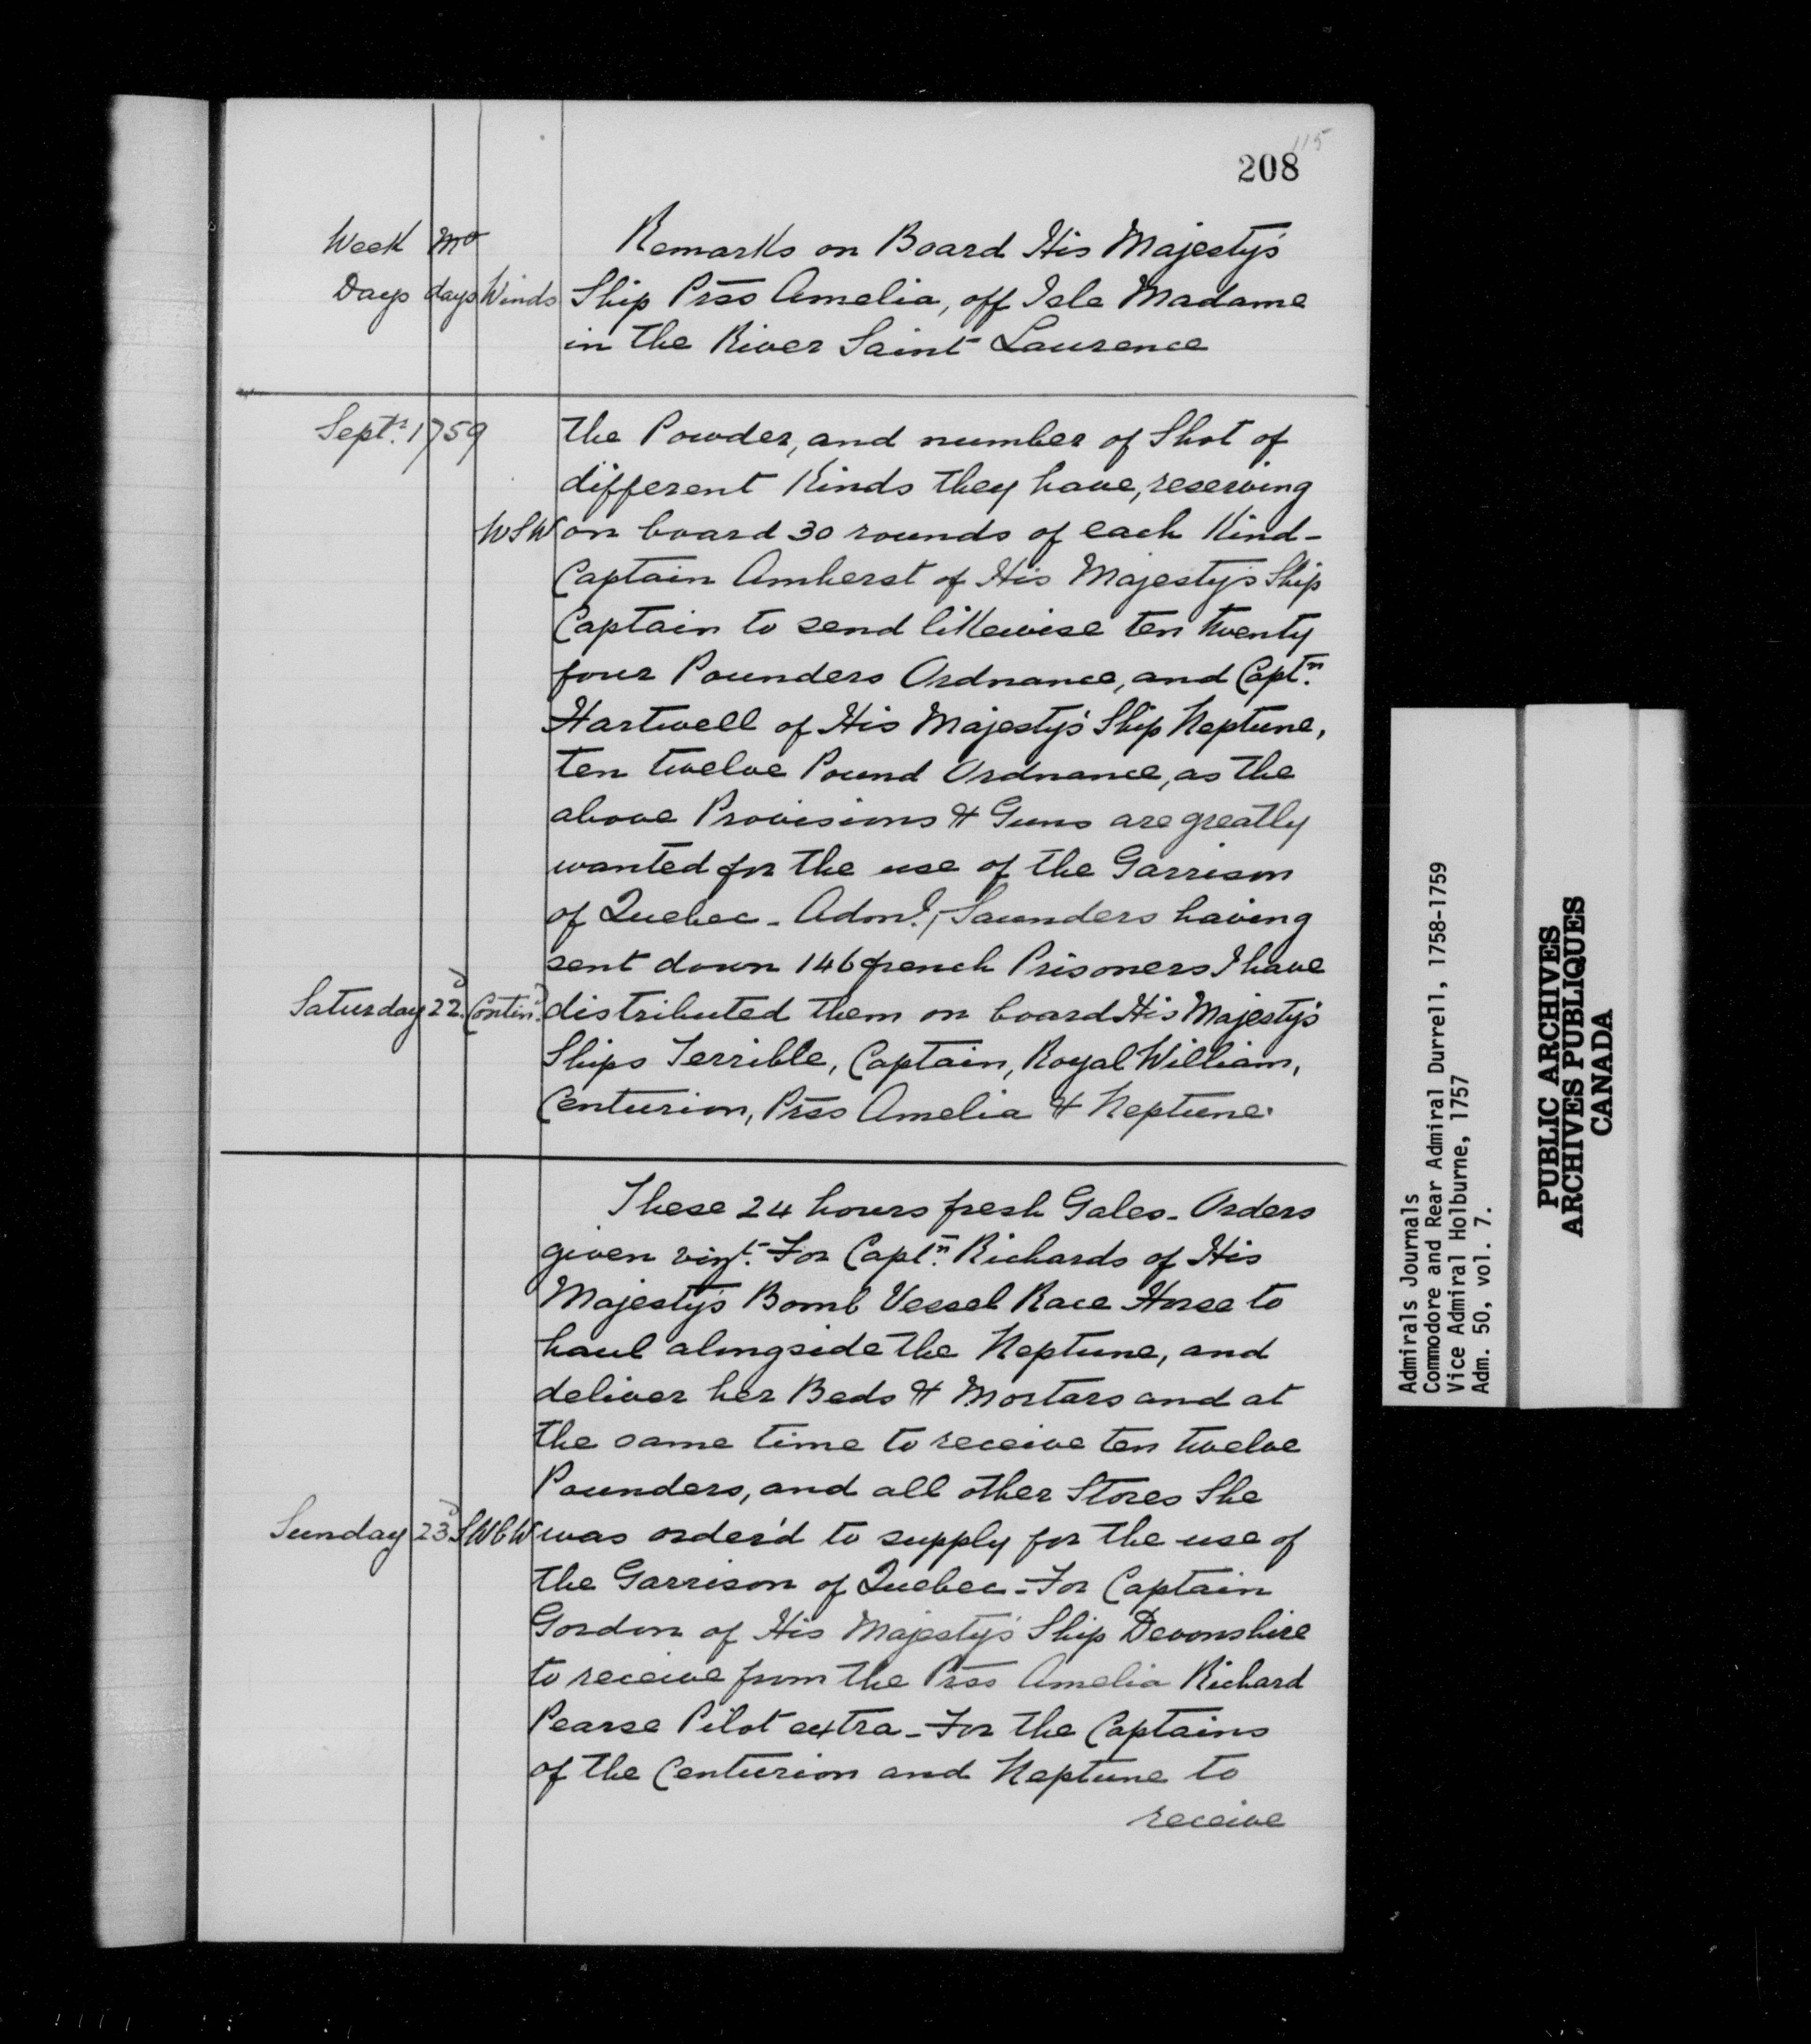 115
208
Week Mo Remarks on Board His Majesty's
Days days Winds Ship Prss Amelia, off Isle Madame
in the River Saint Laurence
Septr. 1759 the Powder, and number of Shot of
different Kinds they have, reserving
WSW on board 30 rounds of each Kind-
Captain Amherst of His Majesty's Ship
Captain to send likewise ten twenty
four Pounders Ordnance, and Captn.
Hartwell of His Majesty's Ship Neptune,
ten twelve Pound Ordnance, as the
above Provisions & Guns are greatly
wanted for the use of the Garrison
of Quebec - Adml. Saunders having
sent down 146 french Prisoners I have
Saturday 22d Contind. distributed them on board His Majesty's
Ships Terrible, Captain, Royal William,
Centurion, Prss Amelia & Neptune.
These 24 hours fresh Gales - Orders
given vizt. For Captn. Richards of His
Majesty's Bomb Vessel Race Horse to
haul alongside the Neptune, and
deliver her Beds & Mortars and at
the same time to receive ten twelve
Pounders, and all other Stores She
Sunday 23d SWbW was order'd to supply for the use of
the Garrison of Quebec - For Captain
Gordon of His Majesty's Ship Devonshire
to receive from the Prss Amelia Richard
Pearse Pilot extra - For the Captains
of the Centurion and Neptune to
receive
Admirals Journals
Commodore and Rear Admiral Durrell, 1758-1759
Vice Admiral Holburne, 1757
Adm. 50, vol. 7.
PUBLIC ARCHIVES
ARCHIVES PUBLIQUES
CANADA